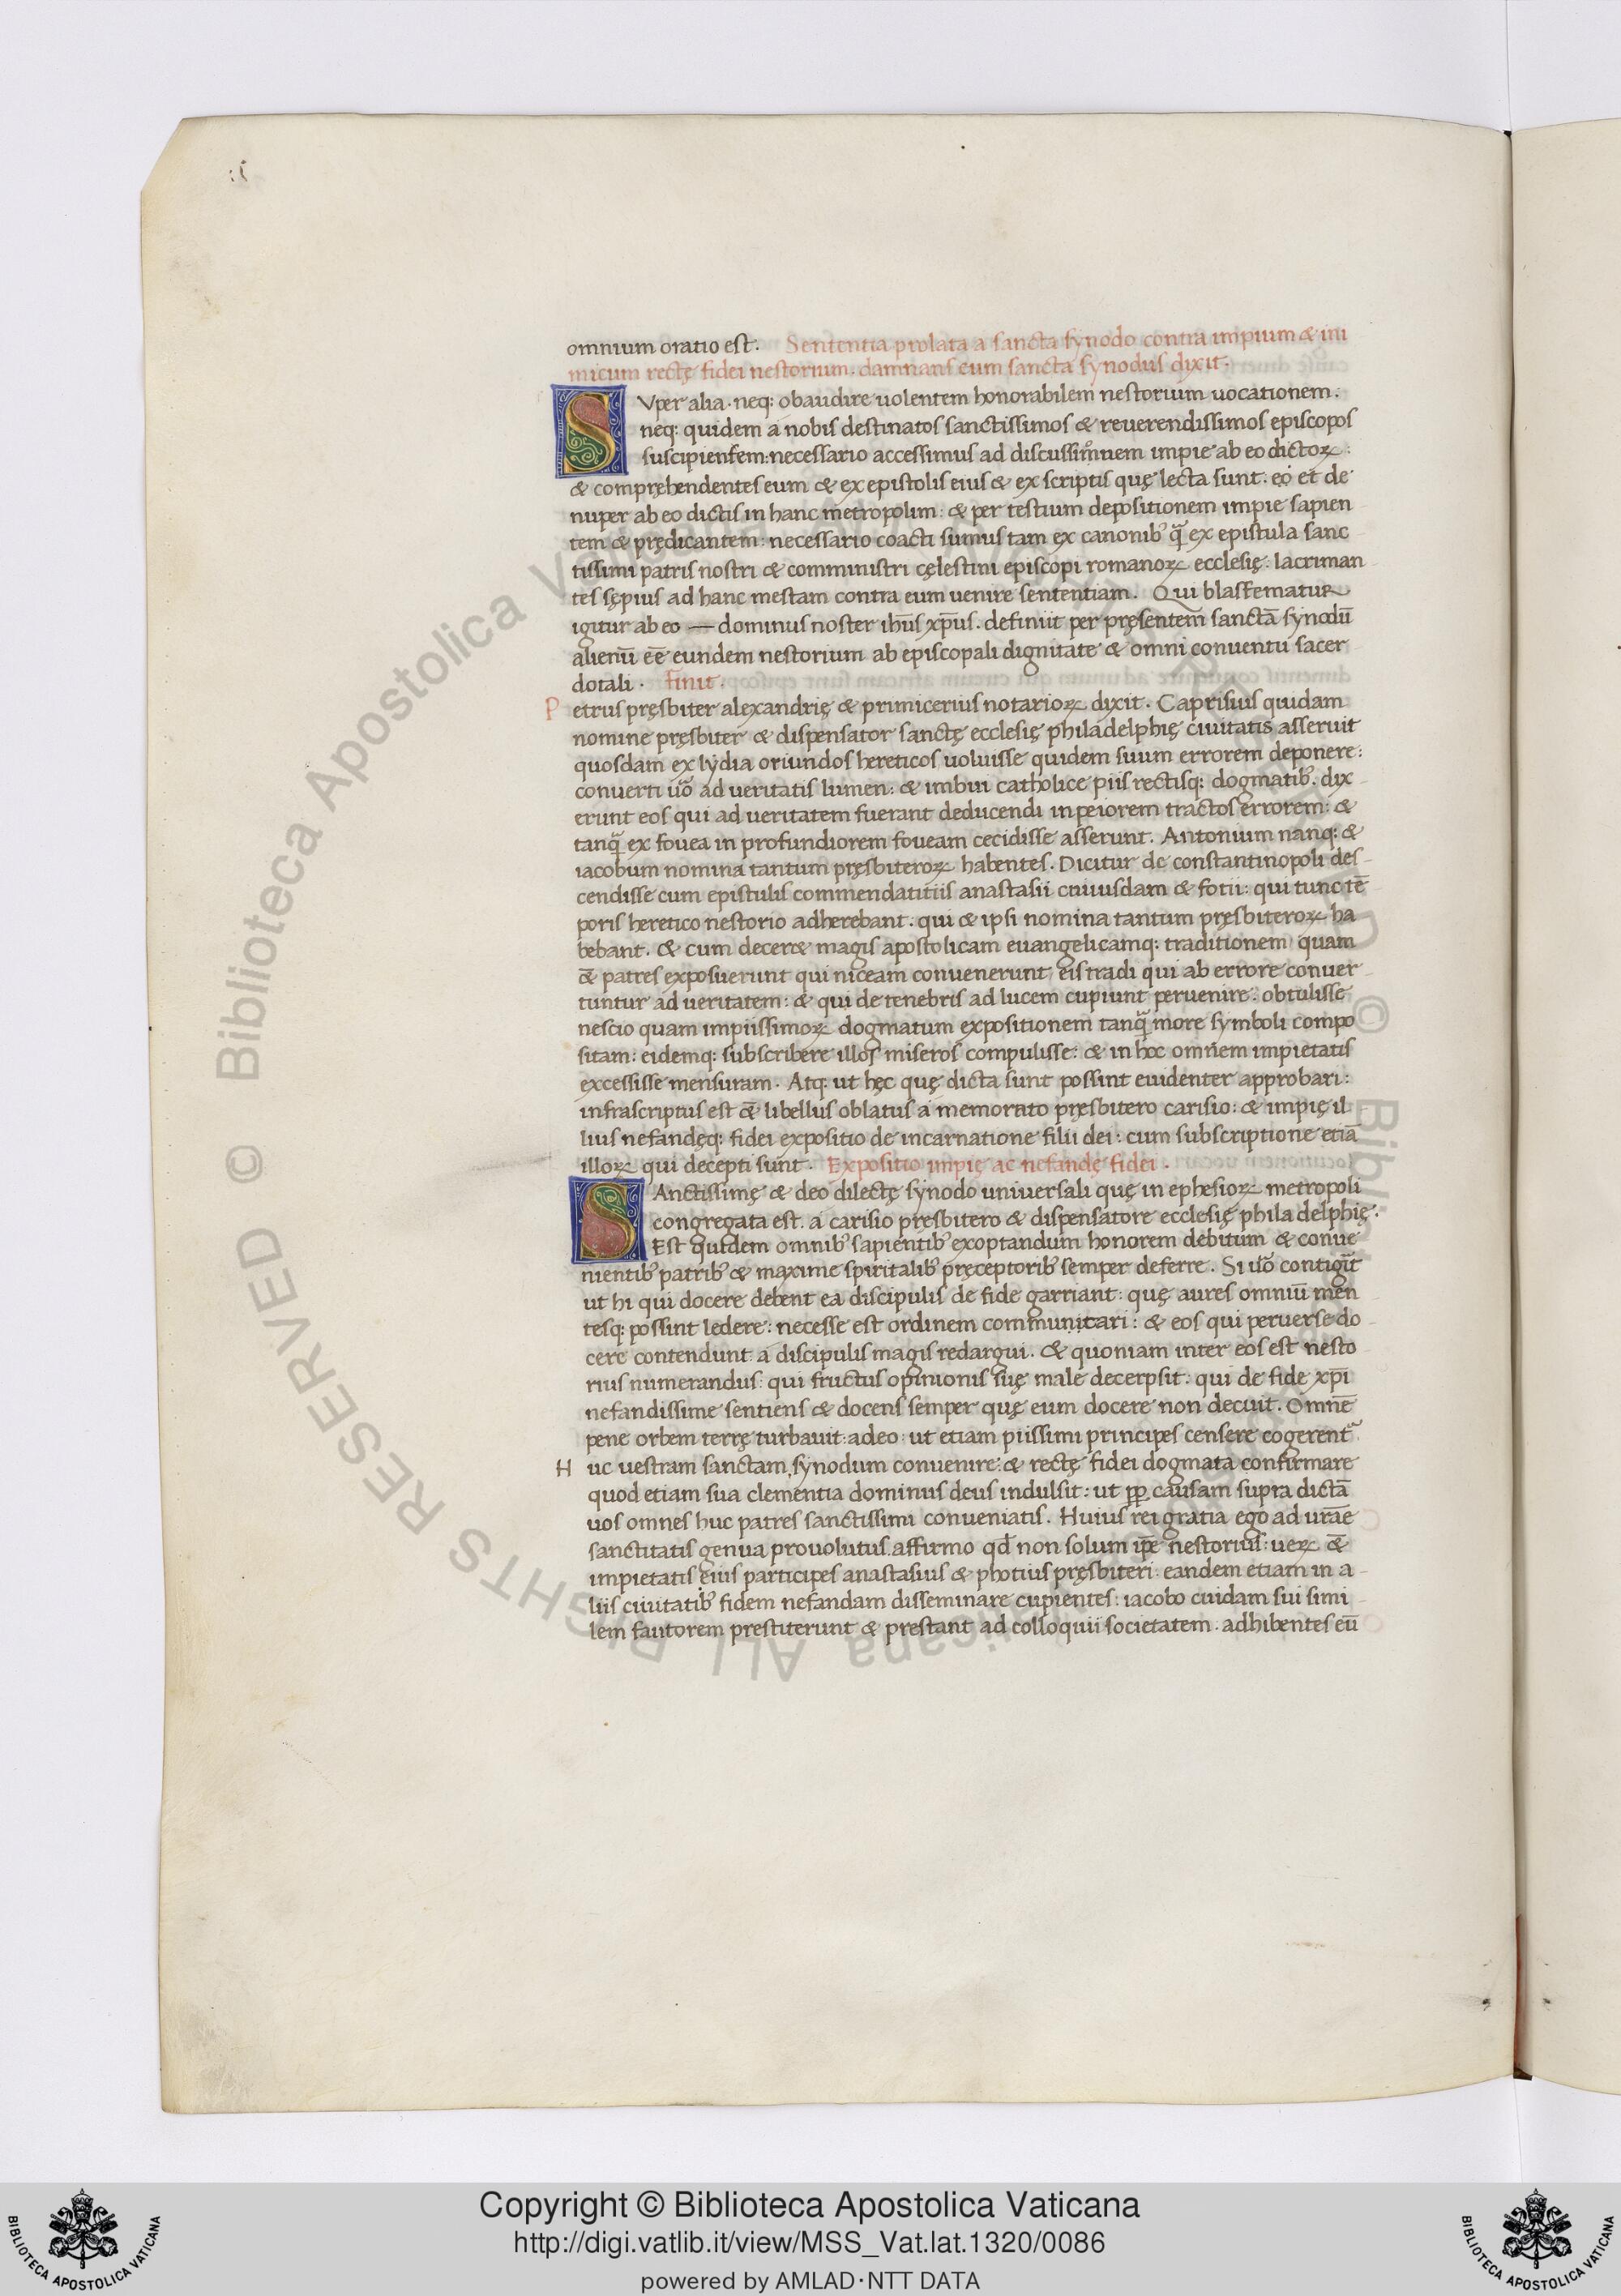 omnium oratio est. Sententia prolata a sancta synodo contra impium & ini
micum rectę fidei nestorium. damnans eum sancta synodus dixit.
SVper alia. neq; obaudire uolentem honorabilem nestorium uocationem:
neq; quidem a nobis destinatos sanctissimos & reuerendissimos episcopos
suscipientem: necessario accessimus ad discussionem impie ab eo dictoꝝ:
& compręhendentes eum & ex epistolis eius & ex scriptis quę lecta sunt. eo et de
nuper ab eo dictis in hanc metropolim: & per testium depositionem impie sapien
tem & prędicantem: necessario coacti sumus tam ex canonib' q̃ ex epistula sanc
tissimi patris nostri & comministri cęlestini episcopi romanoꝝ ecclesię: lacriman
tes sępius ad hanc mestam contra eum uenire sententiam. Qui blasfematur
igitur ab eo — dominus noster ih̅us xp̅us. definiit per pręsentem sanctā synodū
alienū eē eundem nestorium ab episcopali dignitate & omni conuentu sacer
dotali. Finit.
Petrus pręsbiter alexandrię & primicerius notarioꝝ dixit. Caprisius quidam
nomine pręsbiter & dispensator sanctę ecclesię philadelphię ciuitatis asseruit
quosdam ex lydia oriundos hereticos uoluisse quidem suum errorem deponere:
conuerti uo̅ ad ueritatis lumen: & imbui catholice piis rectisq; dogmatib'. dix
erunt eos qui ad ueritatem fuerant deducendi in peiorem tractos errorem: &
tanq̃ ex fouea in profundiorem foueam cecidisse asserunt. Antonium nanq; &
iacobum nomina tantum pręsbiteroꝝ habentes. Dicitur de constantinopoli des
cendisse cum epistulis commendatitiis anastasii cuiusdam & fotii: qui tunc tē
poris heretico nestorio adherebant: qui & ipsi nomina tantum pręsbiteroꝝ ha
bebant. & cum decer& magis apostolicam euangelicamq; traditionem quam
&̅ patres exposuerunt qui niceam conuenerunt eis tradi qui ab errore conuer
tuntur ad ueritatem: & qui de tenebris ad lucem cupiunt peruenire: obtulisse
nescio quam impiissimoꝝ dogmatum expositionem tanq̃ more symboli compo
sitam: eidemq; subscribere illos miseros compulisse: & in hoc omnem impietatis
excessisse mensuram. Atq; ut hęc quę dicta sunt possint euidenter approbari:
infrascriptus est &̅ libellus oblatus a memorato pręsbitero carisio: & impię il
lius nefandęq; fidei expositio de incarnatione filii dei: cum subscriptione etiā
illoꝝ qui decepti sunt. Expositio impię ac nefandę fidei.
SAnctissimę & deo dilectę synodo uniuersali quę in ephesioꝝ metropoli
congregata est. a carisio presbitero & dispensatore ecclesię phila delphię.
Est quidem omnib' sapientib' exoptandum honorem debitum & conue
nientib' patrib' & maxime spiritalib' pręceptorib' semper deferre. Si uo̅ contigit
ut hi qui docere debent ea discipulis de fide garriant: quę aures omniū men
tesq; possint ledere: necesse est ordinem communitari: & eos qui peruerse do
cere contendunt a discipulis magis redargui. & quoniam inter eos est nesto
rius numerandus: qui fructus opinionis suę male decerpsit: qui de fide xp̅i
nefandissime sentiens & docens semper quę eum docere non decuit. Omnē
pene orbem terrę turbauit: adeo: ut etiam piissimi principes censere cogerent'
Huc uestram sanctam, synodum conuenire: & rectę fidei dogmata confirmare
quod etiam sua clementia dominus deus indulsit: ut pp̅ causam supra dictā
uos omnes huc patres sanctissimi conueniatis. Huius rei gratia ego ad ur̅ae
sanctitatis genua prouolutus. affirmo qd̅ non solum ip̅e nestorius: ueꝝ &̅
impietatis eius participes anastasius & photius pręsbiteri: eandem etiam in a
liis ciuitatib' fidem nefandam disseminare cupientes: iacobo cuidam sui simi
lem fautorem prestiterunt & prestant ad colloquii societatem. adhibentes eū
© Biblioteca Apostolica Vaticana ALL RIGHTS RESERVED
Copyright © Biblioteca Apostolica Vaticana
http://digi.vatlib.it/view/MSS_Vat.lat.1320/0086
powered by AMLAD·NTT DATA
BIBLIOTECA APOSTOLICA VATICANA
BIBLIOTECA APOSTOLICA VATICANA